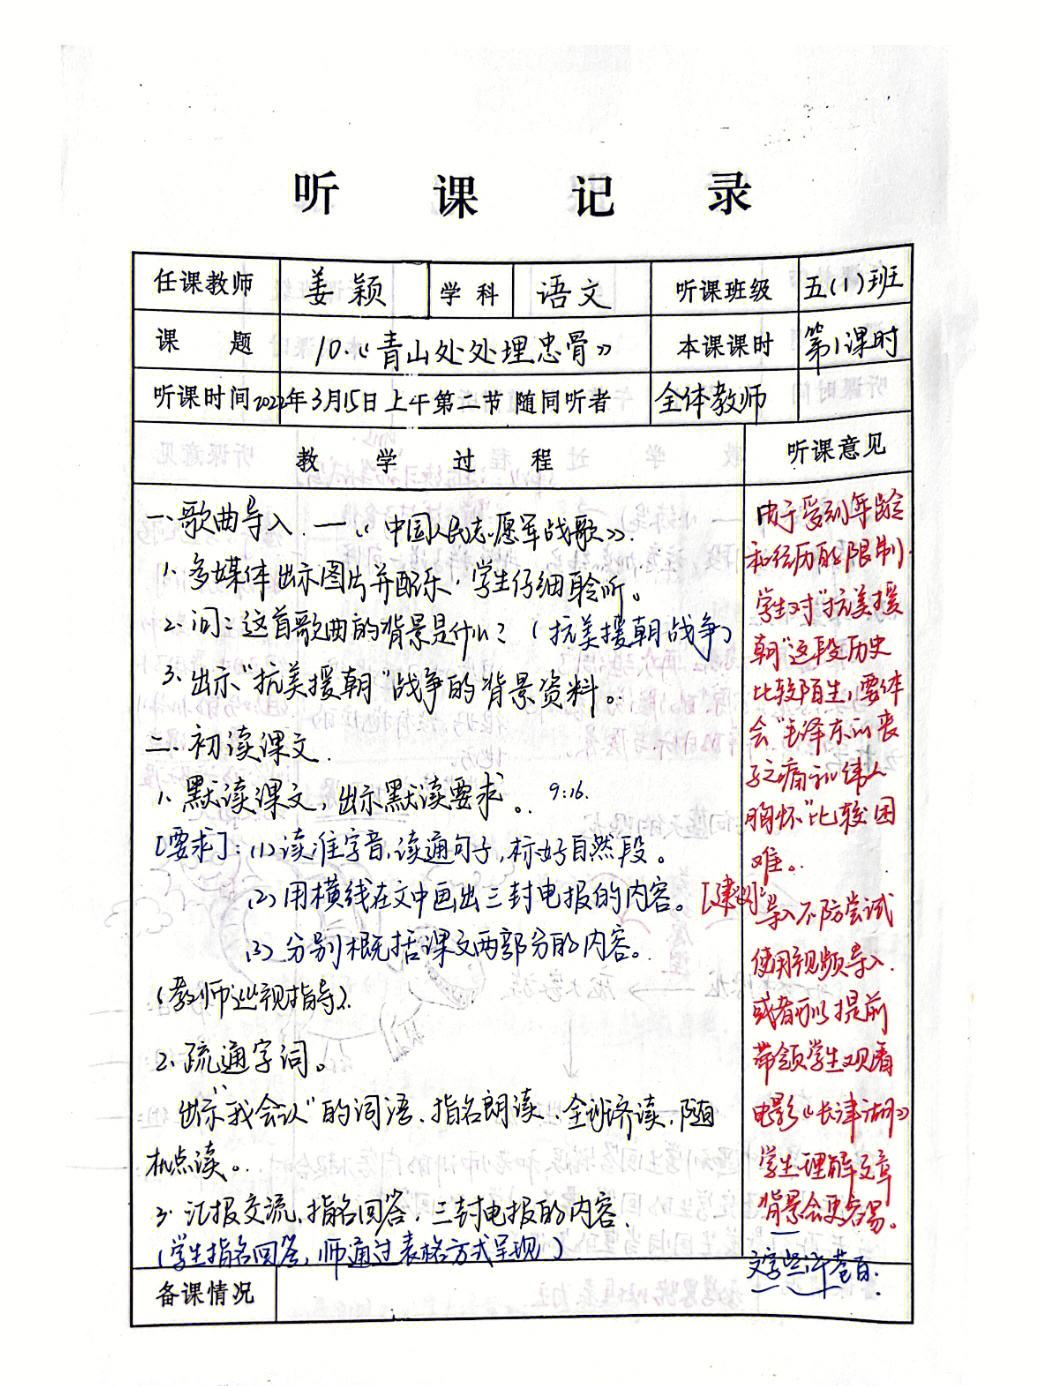 听课记录
任课教师 姜颖 学科 语文 听课班级 五(1)班
课题 10.《青山处处埋忠骨》 本课课时 第1课时
听课时间 2022年3月15日上午第二节 随同听者 全体教师
教学过程 听课意见
一、歌曲导入 —《中国人民志愿军战歌》.
1、多媒体出示图片并配乐，学生仔细聆听。
2、问：这首歌曲的背景是什么？（抗美援朝战争）
3、出示"抗美援朝"战争的背景资料。
二、初读课文.
1、默读课文，出示默读要求。 9:16.
[要求]：(1)读准字音,读通句子,标好自然段。
(2)用横线在文中画出三封电报的内容。
(3)分别概括课文两部分的内容。
(教师巡视指导).
2、疏通字词。
出示"我会认"的词语、指名朗读、全班齐读,随
机点读。
3、汇报交流,指名回答,三封电报的内容.
(学生指名回答,师通过表格方式呈现)
由于受到年龄
和经历的限制,
学生对"抗美援
朝"这段历史
比较陌生,要体
会"毛泽东的丧
子之痛和伟人
胸怀"比较困
难。
[建议]导入不防尝试
使用视频导入.
或者可以提前
带领学生观看
电影《长津湖》
学生理解文章
背景会更容易。
备课情况